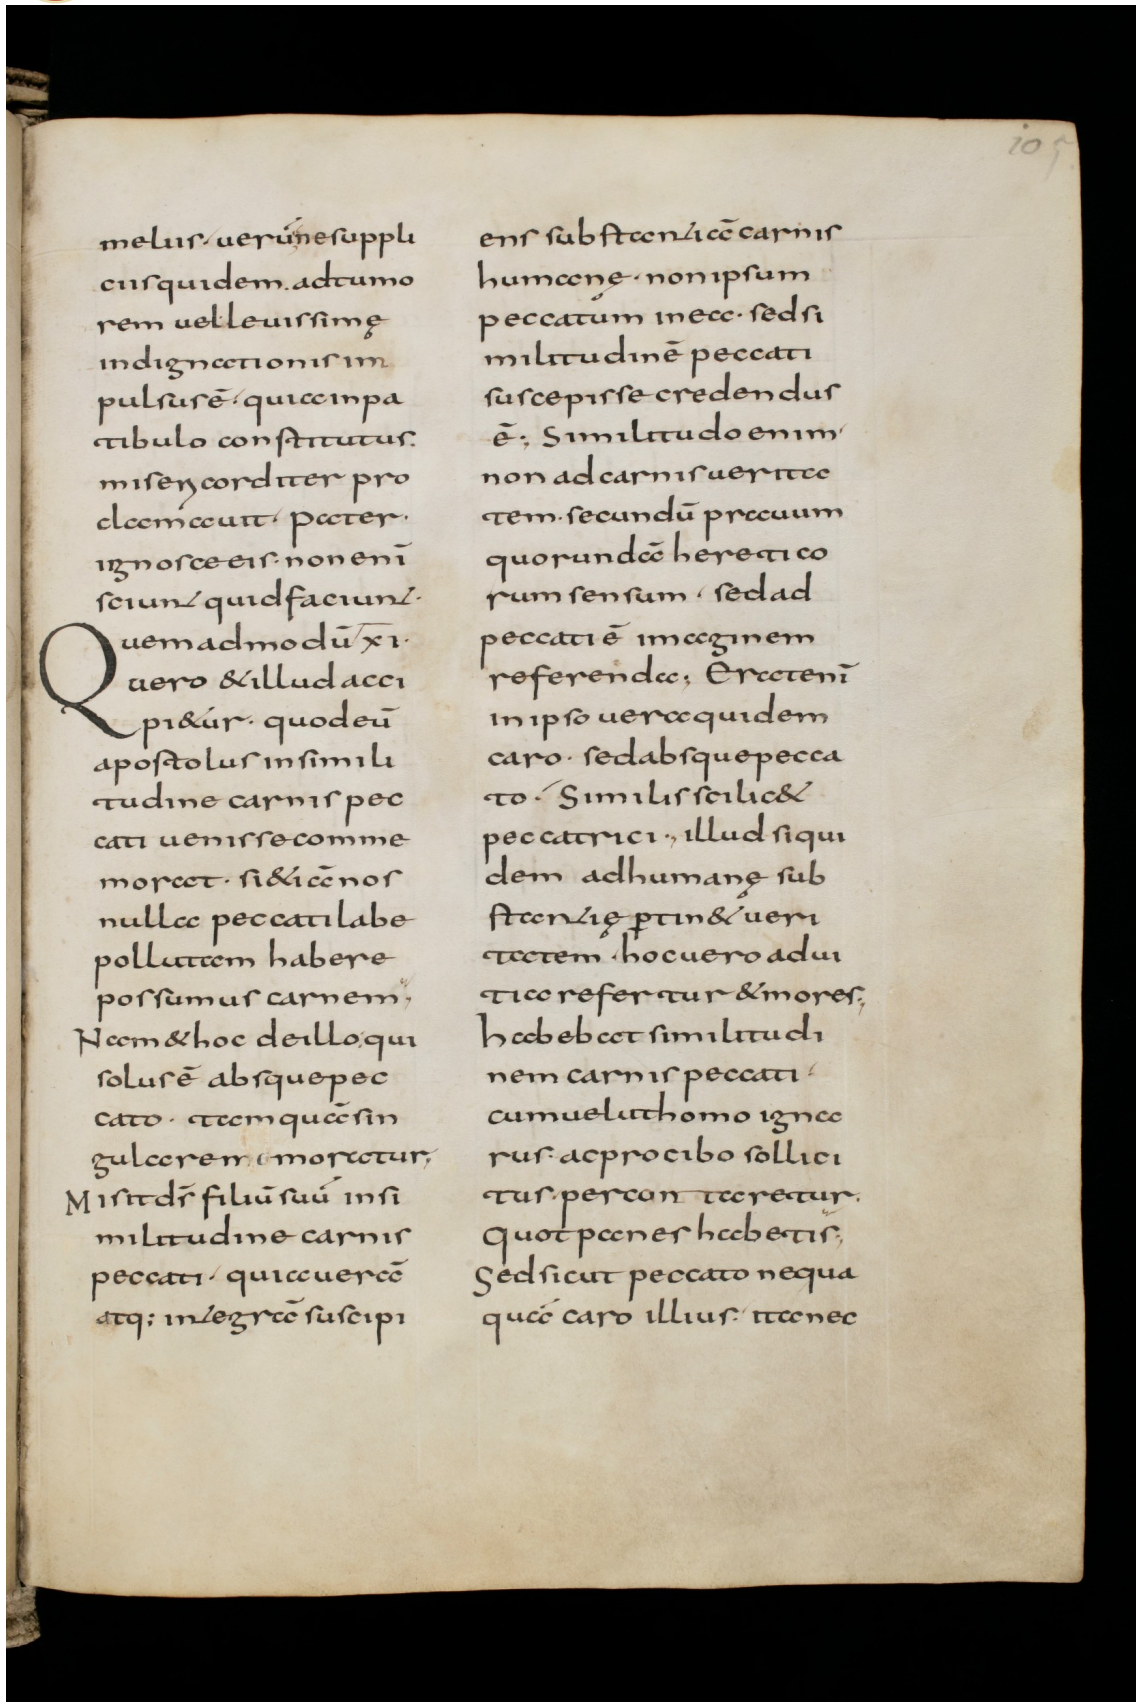 105
melus· uerū nesuppli
ciisquidem. adtumo
rem uelleuissimę
indignationisim
pulsusē· quiainpa
tibulo constitutus.
misericorditer pro
clamauit· Pater·
ignosceeis· nonenī
sciunt quidfaciunt·
Quemadmodū xi·
uero &illudacci
pi&ur· quodeū
apostolus insimili
tudine carnis pec
cati uenissecomme
morat· si&icā nos
nulla peccatilabe
pollutam habere
possumus carnem;
Nam&hoc deillo qui
solusē absquepec
cato· tamquāsin
gularem emoratur;
Misitds̄ filiūsuū insi
militudine carnis
peccati· quiauerā
atq; integrā suscipi
ens substantiā carnis
humanę· nonipsum
peccatum inea· sedsi
militudinē peccati
suscepisse credendus
ē; Similitudoenim
non adcarnisuerita
tem· secundū prauum
quorundā heretico
rumsensum· sedad
peccatiē imaginem
referenda; Eratenī
inipso ueraquidem
caro· sedabsquepecca
to· Similisscilic&
peccatrici; illudsiqui
dem adhumanę sub
stantię ꝑtin& ueri
tatem· hocuero adui
tia refertur &mores;
habebat similitudi
nem carnis peccati·
cumueluthomo igna
rus· acprocibo sollici
tus· percon taretur.
Quot panes habetis;
Sedsicut peccato nequa
quā caro illius· itanec